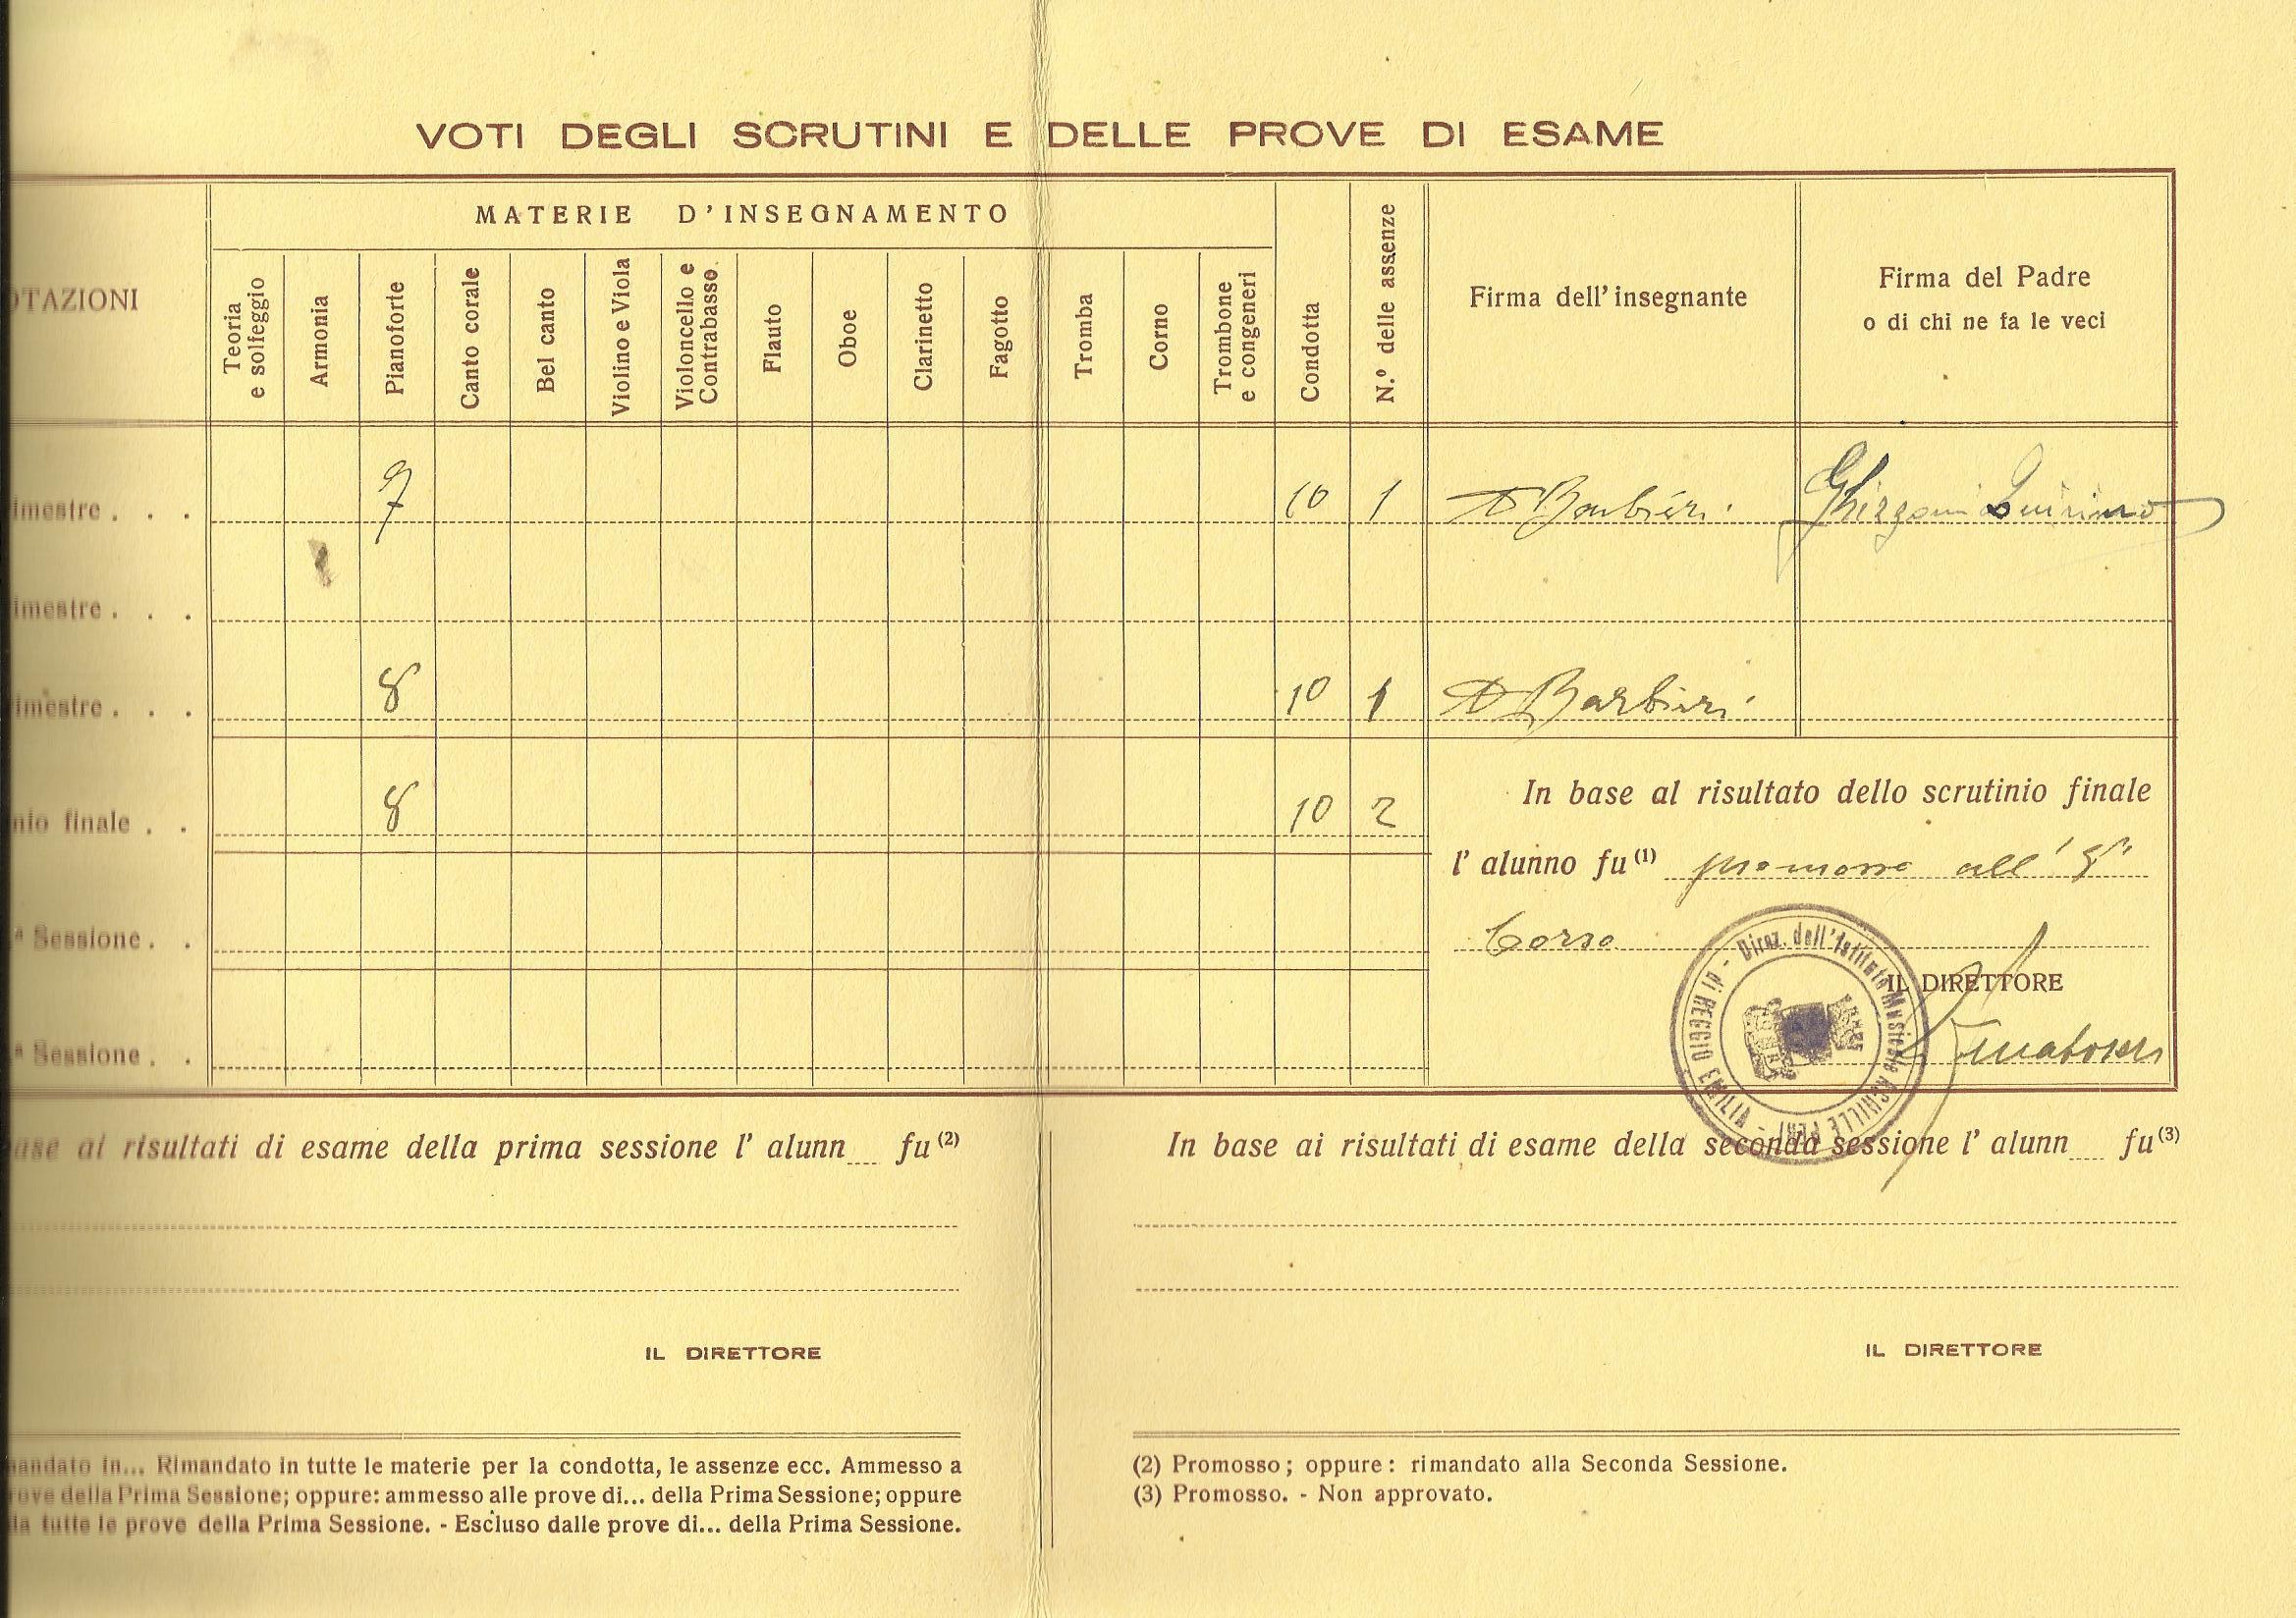 VOTI DEGLI SCRUTINI E DELLE PROVE DI ESAME
OTAZIONI
MATERIE D'INSEGNAMENTO
Teoria e solfeggio
Armonia
Pianoforte
Canto corale
Bel canto
Violino e Viola
Violoncello e Contrabasso
Flauto
Oboe
Clarinetto
Fagotto
Tromba
Corno
Trombone e congeneri
Condotta
N.º delle assenze
Firma dell'insegnante
Firma del Padre
o di chi ne fa le veci
imestre . . . 7 10 1 A Barbieri Ghizzoni Quirino
imestre . . .
imestre . . . 8 10 1 A Barbieri
nio finale . . 8 10 2
In base al risultato dello scrutinio finale
l'alunno fu (1) promosso all'
Corso
ª Sessione . .
IL DIRETTORE
Direz. dell'Istituto Musicale ACHILLE PERI - di REGGIO EMILIA -
ª Sessione . .
ase ai risultati di esame della prima sessione l'alunn... fu (2)
In base ai risultati di esame della seconda sessione l'alunn.... fu (3)
IL DIRETTORE
IL DIRETTORE
mandato in... Rimandato in tutte le materie per la condotta, le assenze ecc. Ammesso a
rove della Prima Sessione; oppure: ammesso alle prove di... della Prima Sessione; oppure
da tutte le prove della Prima Sessione. - Escluso dalle prove di... della Prima Sessione.
(2) Promosso; oppure: rimandato alla Seconda Sessione.
(3) Promosso. - Non approvato.